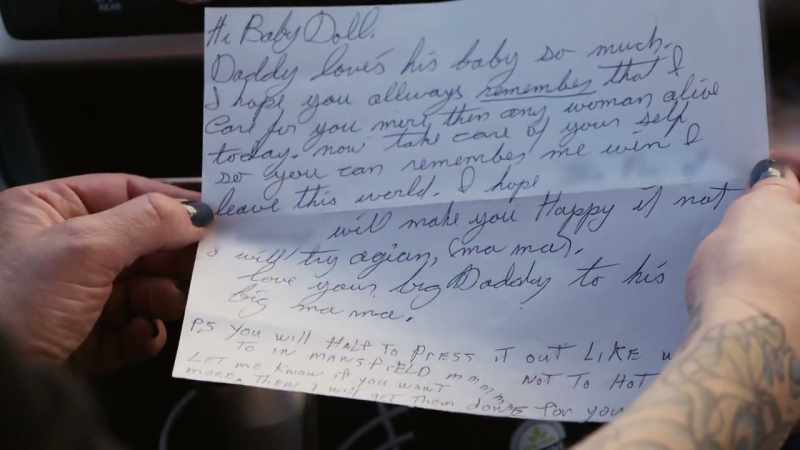 Hi Baby Doll.
Daddy loves his baby so much.
I hope you allways remember that I
Care for you more then any woman alive
today. now take care of your self
so you can remember me win I
leave this world. I hope
will make you Happy if not
I will try agian, (ma ma).
love your big Daddy to his
big ma ma.
P.S you will HAFE TO PRESS IT OUT LIKE
TO IN MANSFIELD mmmmm NOT TO HOT
LET ME KNOW if you WANT
MORE. THEN I will get THEM donE for you